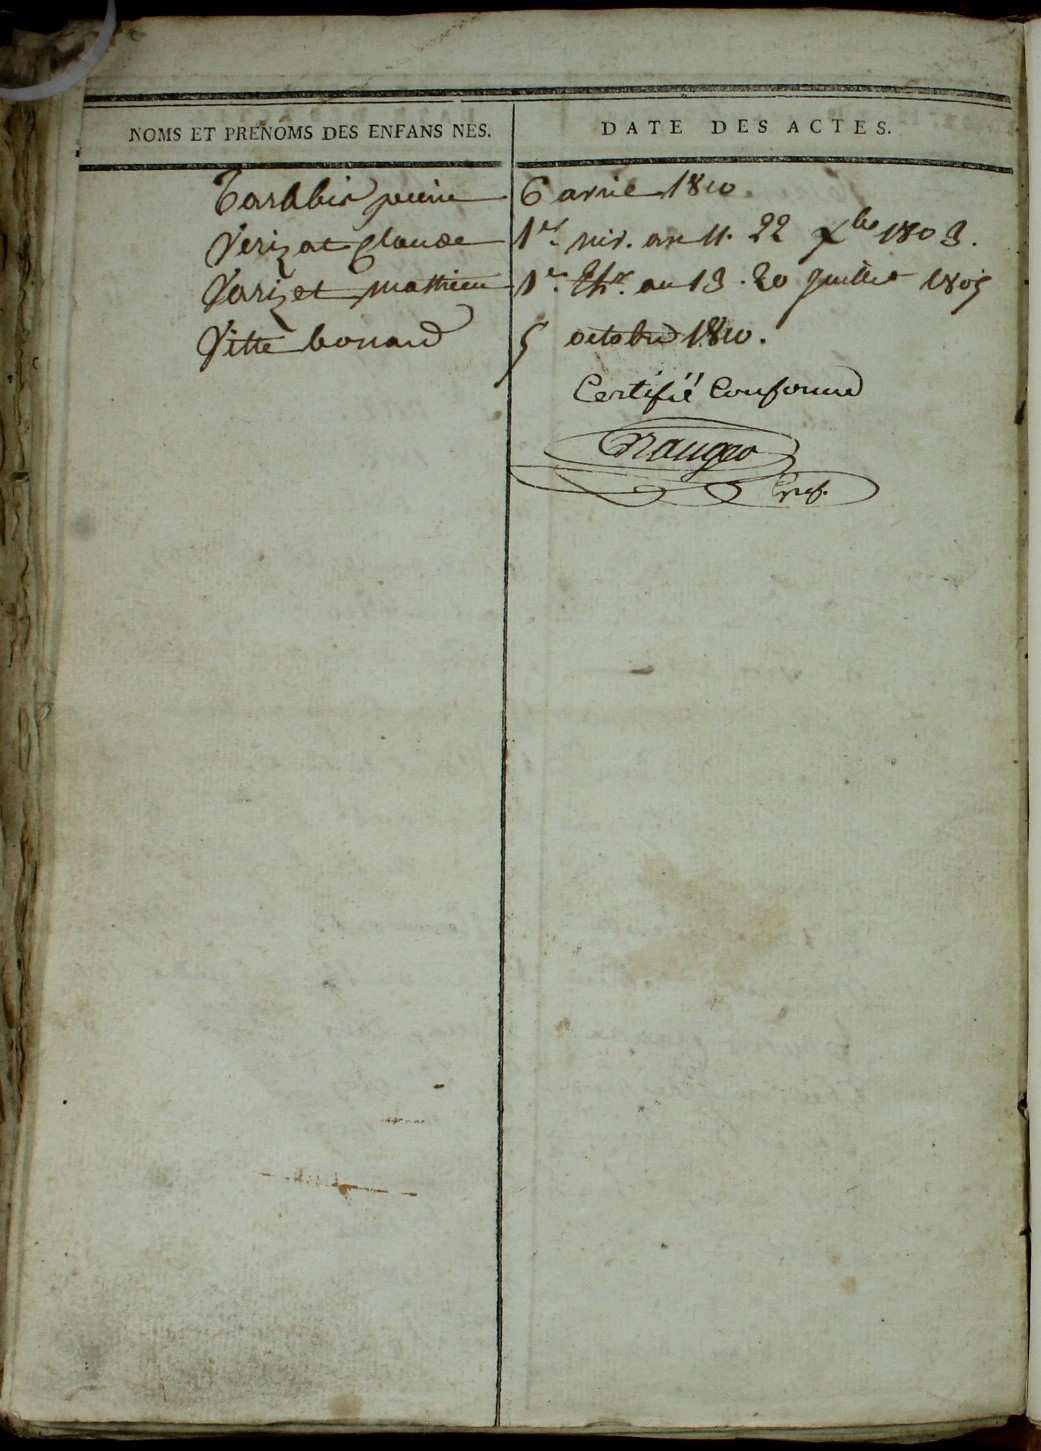 NOMS ET PRÉNOMS DES ENFANS NÉS.
DATE DES ACTES.
pierre 6 avril 1810.
Verizat Claude 1er. niv. an 11. 22 Xbre 1803.
Varizet Mathieu 1er. Thr. an 13. 20 Juillet 1805
Vitte bonard 5 octobre 1810.
Certifié Conforme